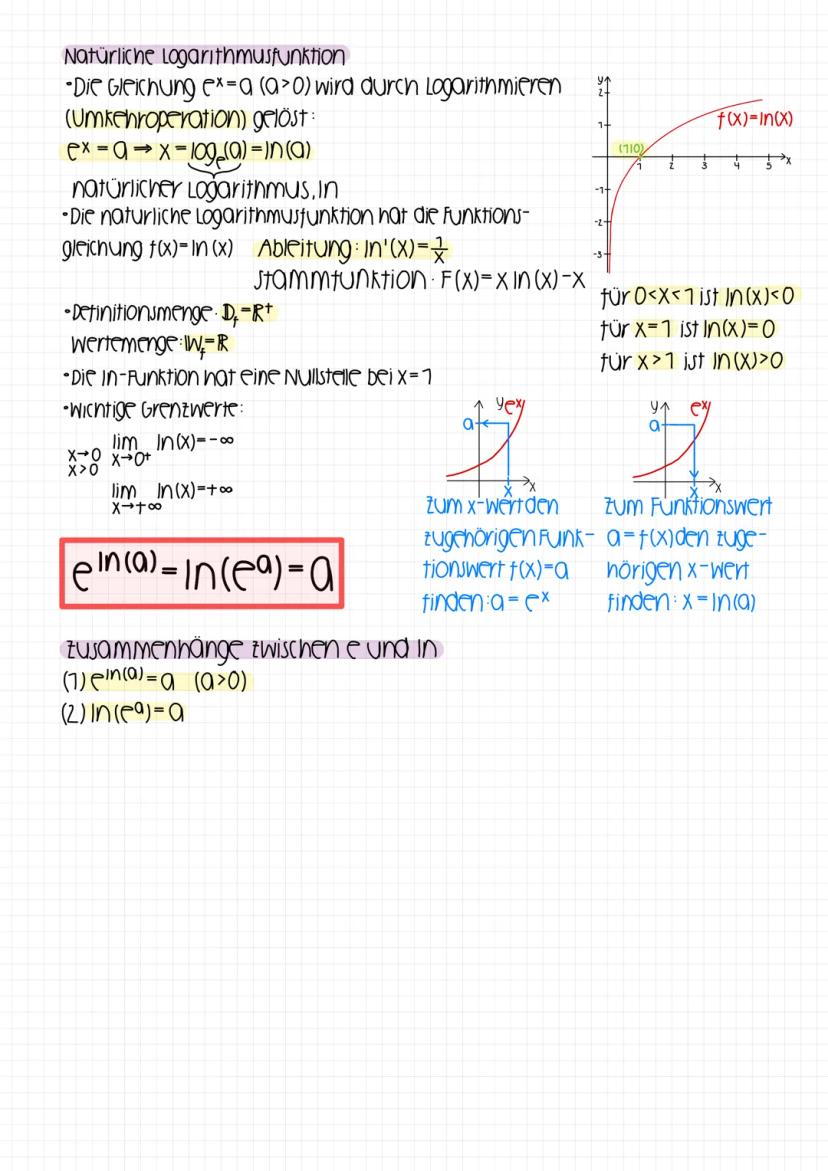 Natürliche Logarithmusfunktion
•Die Gleichung eˣ=a (a>0) wird durch Logarithmieren
(Umkehroperation) gelöst:
eˣ = a ⇒ x = logₑ(a) = ln(a)
natürlicher Logarithmus, ln
•Die natürliche Logarithmusfunktion hat die Funktions-
gleichung f(x)= ln (x) Ableitung: ln'(x)= 1/x
Stammfunktion: F(x)= x ln(x)-x
•Definitionsmenge: D_f=R⁺
Wertemenge: W_f=R
•Die ln-Funktion hat eine Nullstelle bei x=1
•Wichtige Grenzwerte:
x→0 x>0 lim x→0⁺ ln(x)=-∞
lim x→+∞ ln(x)=+∞
e^ln(a) = ln(e^a) = a
y
2
1
-1
-2
-3
1 2 3 4 5 x
(1|0)
f(x)=ln(x)
für 0<x<1 ist ln(x)<0
für x=1 ist ln(x)=0
für x>1 ist ln(x)>0
y eˣ
a
x x
zum x-Wert den
zugehörigen Funk-
tionswert f(x)=a
finden: a = eˣ
y eˣ
a
x x
zum Funktionswert
a=f(x) den zuge-
hörigen x-Wert
finden: x = ln(a)
Zusammenhänge zwischen e und ln
(1) e^ln(a) = a (a>0)
(2) ln(e^a) = a